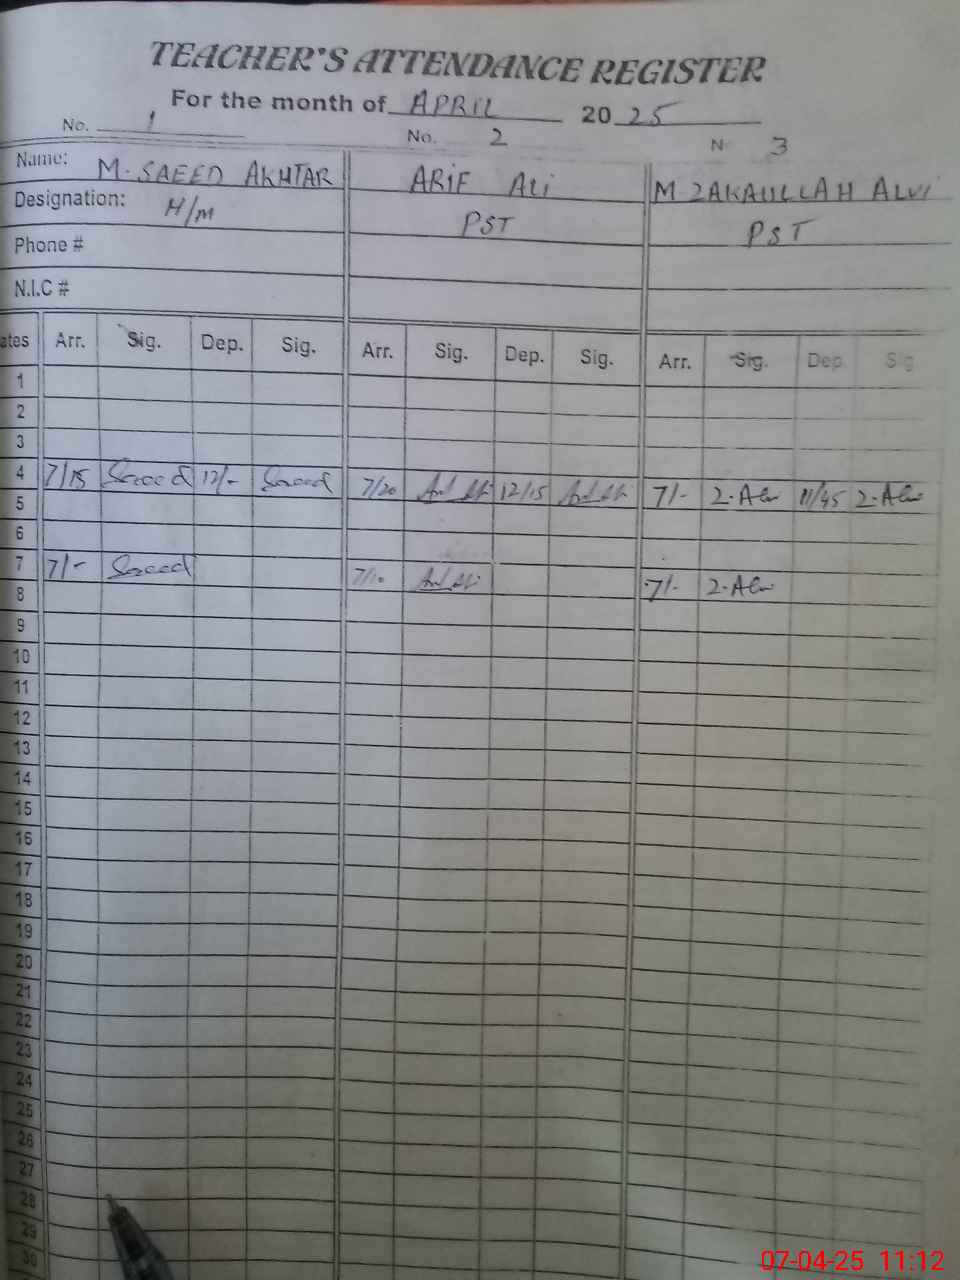 TEACHER'S ATTENDANCE REGISTER
For the month of APRIL 2025
No. 1 No. 2 N 3
Name: M. SAEED AKHTAR ARIF ALi M ZAKAULLAH ALVi
Designation: H/M PST PST
Phone #
N.I.C #
ates Arr. Sig. Dep. Sig. Arr. Sig. Dep. Sig. Arr. Sig. Dep Sig
1
2
3
4 7/15 Saeed 12/- Saeed 7/20 12/15 7/- Z.Alvi 11/45 Z.Alvi
5
6
7 7/- Saeed 7/10 7/- Z.Alvi
8
9
10
11
12
13
14
15
16
17
18
19
20
21
22
23
24
25
26
27
28
29
30
07-04-25 11:12